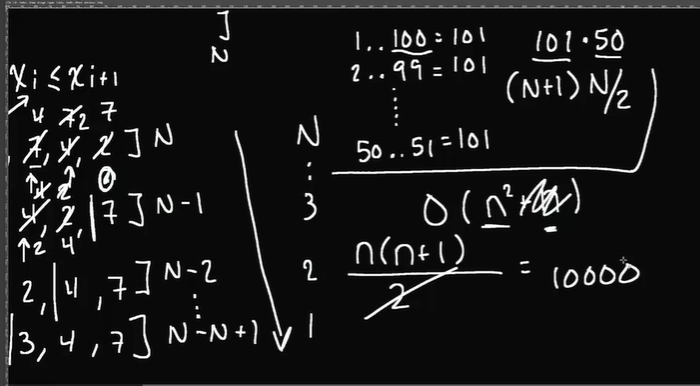 ]
N
Xi ≤ Xi+1
4 7 2 7
7, 4, 2 ] N
4 2
4, 2, | 7 ] N-1
2 4
2, | 4, 7 ] N-2
⋮
| 3, 4, 7 ] N-N+1
N
⋮
3
2
1
1..100 = 101
2..99 = 101
⋮
50..51 = 101
101 · 50
(N+1) N/2
O(n² + )
n(n+1)
2
= 10000